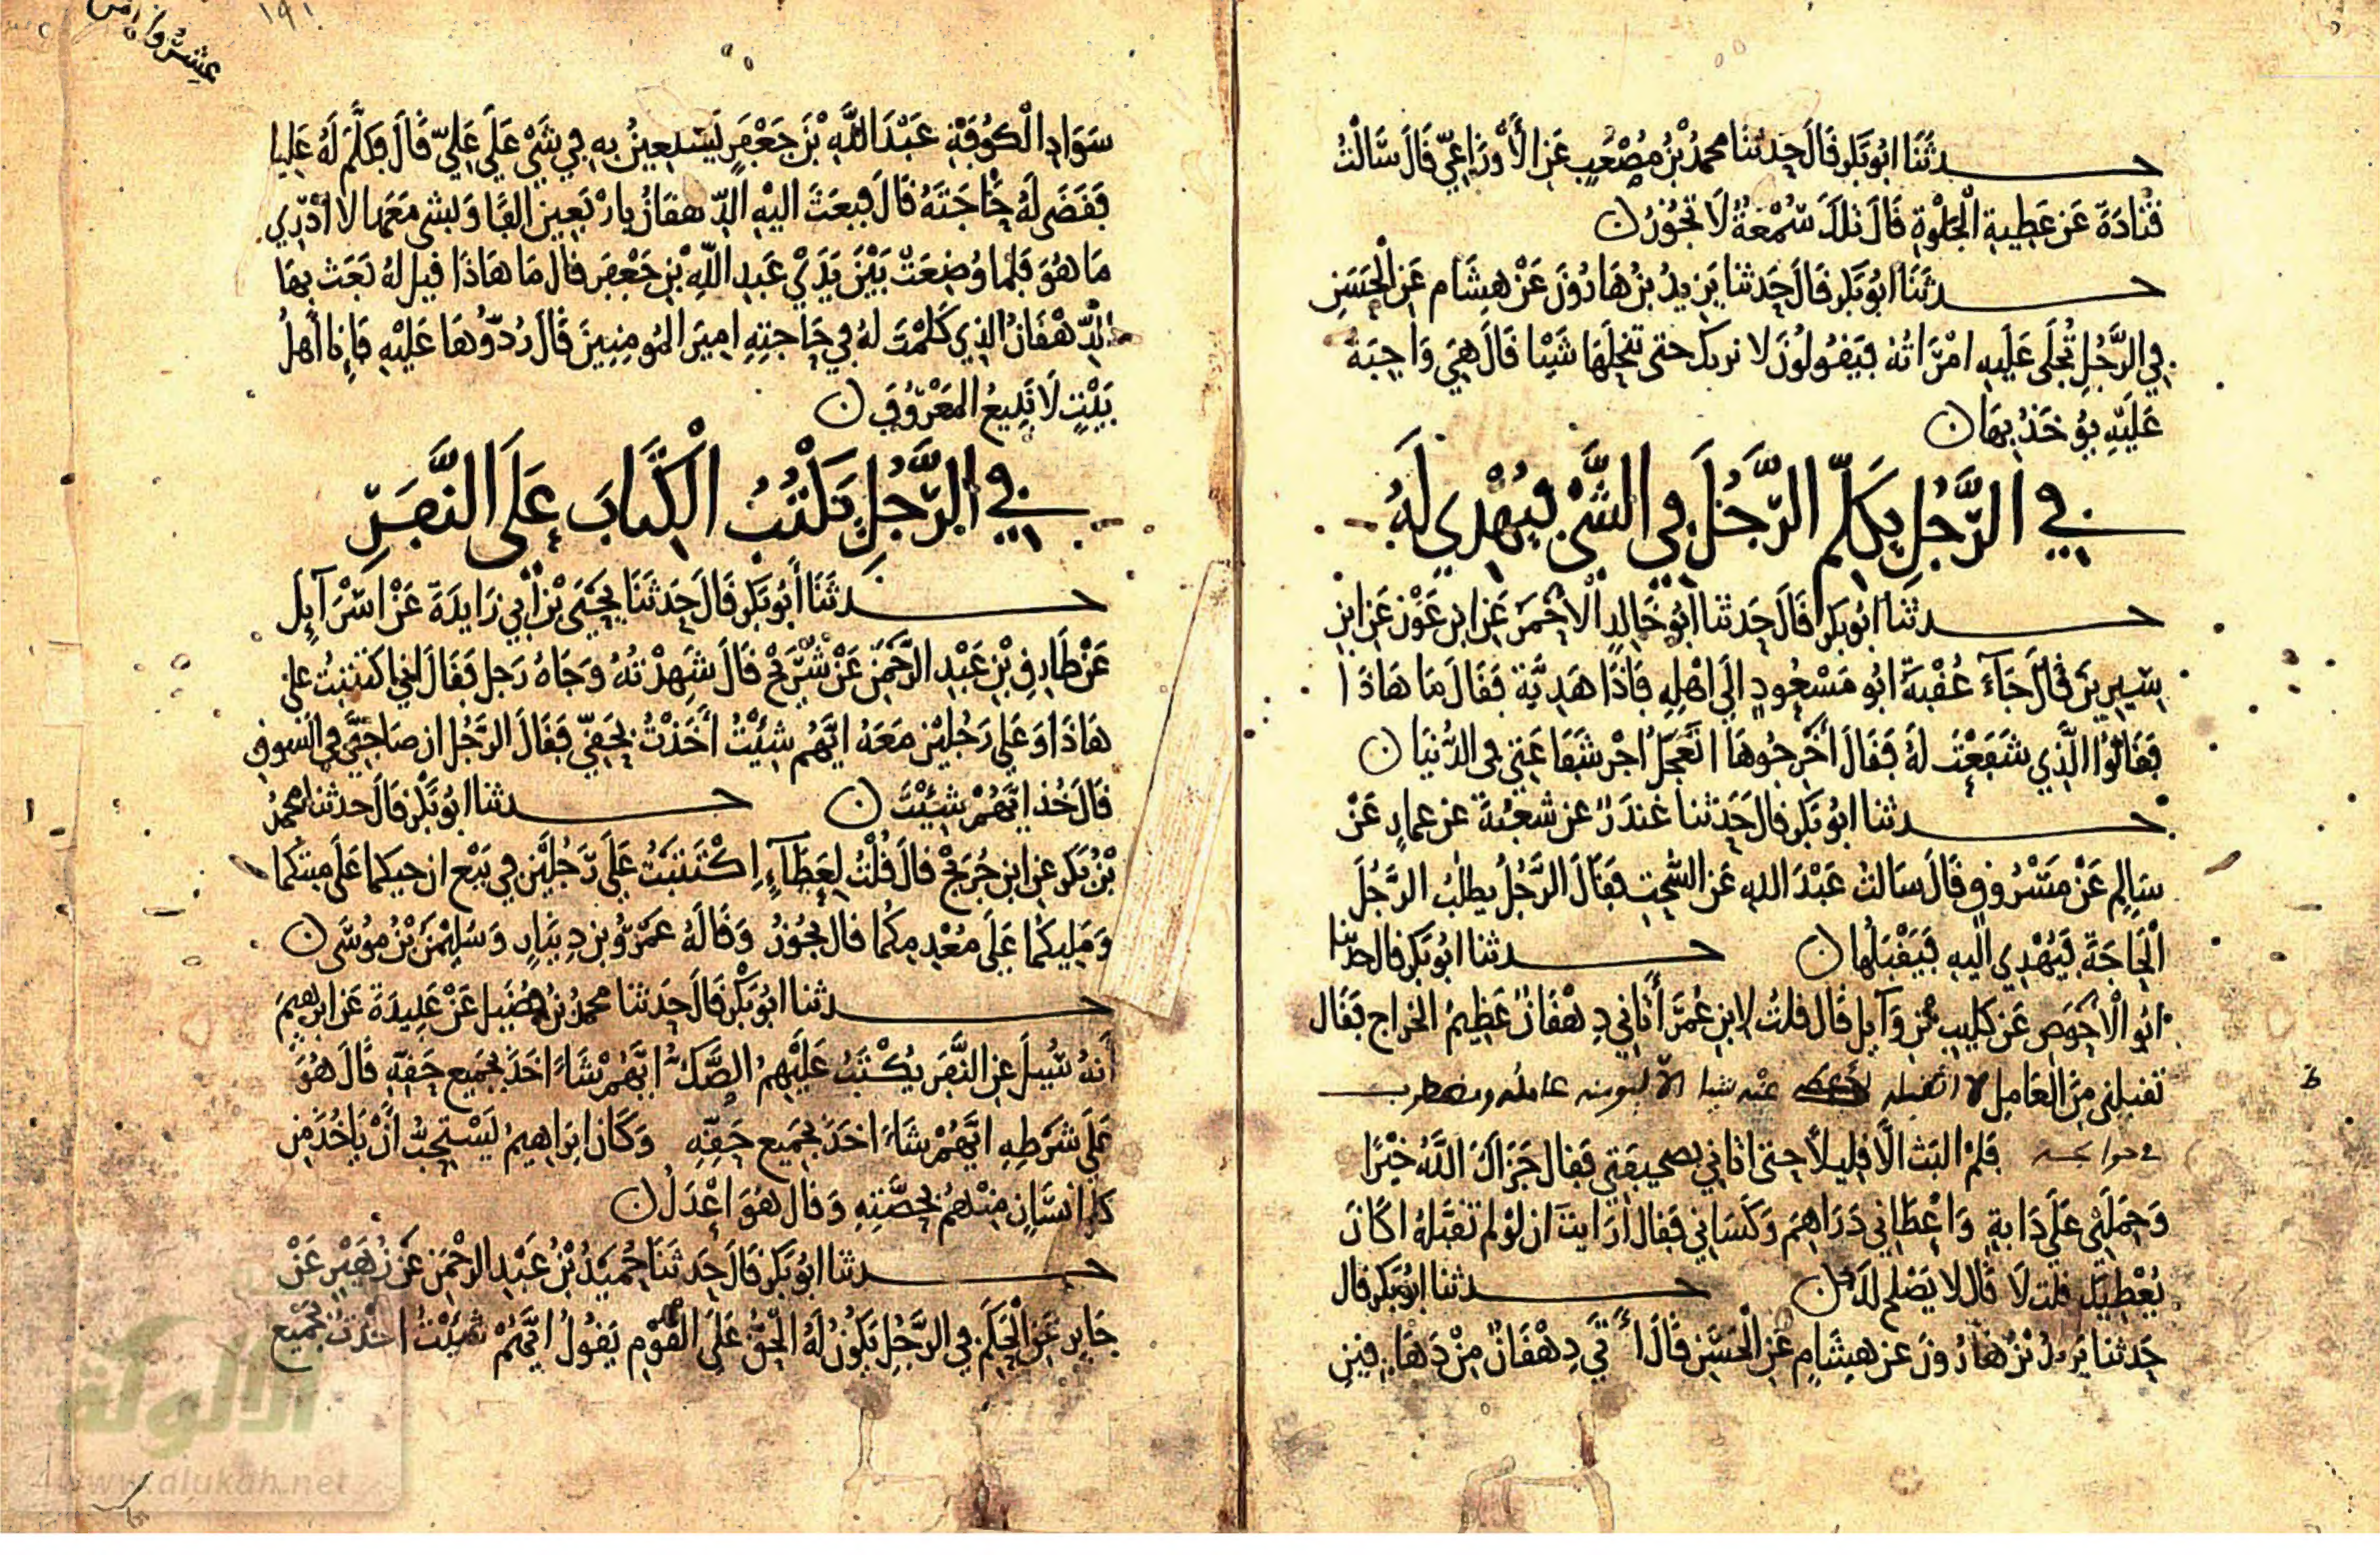 حدثنا ابو بكر قال حدثنا محمد بن مصعب عن الأوزاعي قال سألت
قتادة عن عطية الجلوة قال تلك سمعة لا تجوز
حدثنا ابو بكر قال حدثنا يزيد بن هارون عن هشام عن الحسن
في الرجل تجلى عليه امرأته فيقولون لا نريك حتى تنحلها شيئا قال هي واجبة
عليه يؤخذ بها
في الرجل يكلم الرجل في الشيء فيهدي له
حدثنا ابو بكر قال حدثنا ابو خالد الأحمر عن ابن عون عن ابن
سيرين قال جاء عقبة ابو مسعود إلى اهله فاذا هدية فقال ما هاذا
فقالوا الذي شفعت له فقال أخرجوها اتعجل اجر شفاعتي في الدنيا
حدثنا ابو بكر قال حدثنا غندر عن شعبة عن عمار عن
سالم عن مسروق قال سالت عبد الله عن السحت فقال الرجل يطلب الرجل
الحاجة فيهدي اليه فيقبلها
حدثنا ابو بكر قال حدثنا
ابو الأحوص عن كليب بن وآيل قال قلت لابن عمر أتاني دهقان عظيم الخراج فقال
تقبلني من العامل لا اتقبله عنه شيئا الا
فلم البث الا قليلا حتى اتاني بصحيفتي فقال جزاك الله خيرا
وحملني على دابة واعطاني دراهم وكساني فقال ارايت ان لو لم تقبله اكان
يعطيك قلت لا قال لا يصلح لك
حدثنا ابو بكر قال
حدثنا يزيد بن هارون عن هشام عن الحسن قال أتى دهقان من دهاقين
سواد الكوفة عبد الله بن جعفر يستعين به في شيء على علي قال فكلم له عليا
فقضى له حاجته قال فبعث اليه الدهقان باربعين الفا وبشي معها لا أدري
ما هو فلما وضعت بين يدي عبد الله بن جعفر قال ما هاذا قيل له بعث بها
الدهقان الذي كلمت له في حاجته امير المومنين قال ردوها عليه فإنا أهل
بيت لا نبيع المعروف
في الرجل يكتب الكتاب على النفر
حدثنا أبو بكر قال حدثنا يحيى بن أبي زايدة عن اسرآيل
عن طارق بن عبد الرحمن عن شريح قال شهدته وجاه رجل فقال اني اكتتبت على
هاذا وعلى رجلين معه ايهم شئت أخذت بحقي فقال الرجل ان صاحبي في السوق
قال خذ ايهم شئت
حدثنا ابو بكر قال حدثنا محمد
بن بكر عن ابن جريج قال قلت لعطاء اكتتبت على رجلين في بيع ان حيكما على ميتكما
ومليكما على معدمكما قال يجوز وقاله عمرو بن دينار وسليمن بن موسى
حدثنا ابو بكر قال حدثنا محمد بن فضيل عن عبيدة عن ابرهيم
أنه سيل عن النفر يكتب عليهم الصك ايهم شاء اخذ بجميع حقه قال هو
على شرطه ايهم شاء اخذ بجميع حقه وكان ابراهيم يستحب أن ياخذ من
كل انسان منهم بحصته وقال هو اعدل
حدثنا ابو بكر قال حدثنا حميد بن عبد الرحمن عن زهير عن
جابر عن الحكم في الرجل يكون له الحق على القوم يقول ايهم شئت اخذت بجميع
١٩١
الألوكة
www.alukah.net